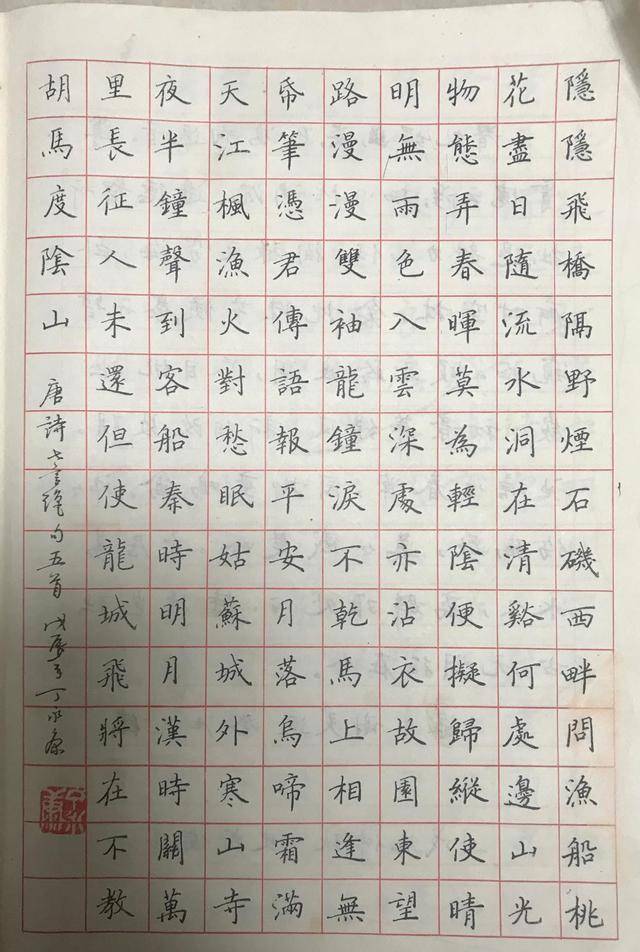 隱隱飛橋隔野煙石磯西畔問漁船桃
花盡日隨流水洞在清谿何處邊山光
物態弄春暉莫為輕陰便擬歸縱使晴
明無雨色入雲深處亦沾衣故園東望
路漫漫雙袖龍鐘淚不乾馬上相逢無
帋筆憑君傳語報平安月落烏啼霜滿
天江楓漁火對愁眠姑蘇城外寒山寺
夜半鐘聲到客船秦時明月漢時關萬
里長征人未還但使龍城飛將在不教
胡馬度陰山
唐詩七言绝句五首 戊辰 丁永康